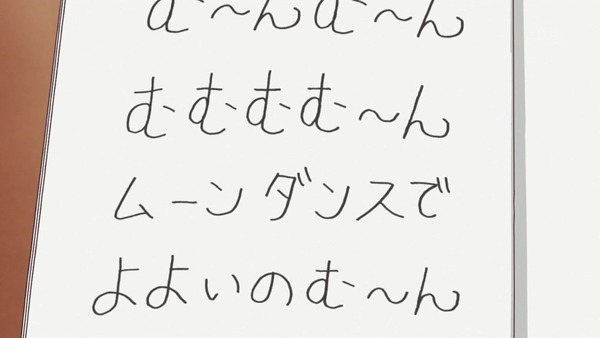 む〜んむ〜ん
むむむむ〜ん
ムーンダンスで
よよいのむ〜ん